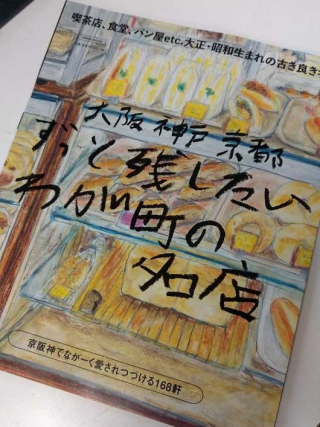 喫茶店、食堂、パン屋etc.大正・昭和生まれの古き良き
大阪 神戸 京都
ずっと残したい
わが町の
名店
京阪神でながーく愛されつづける168軒